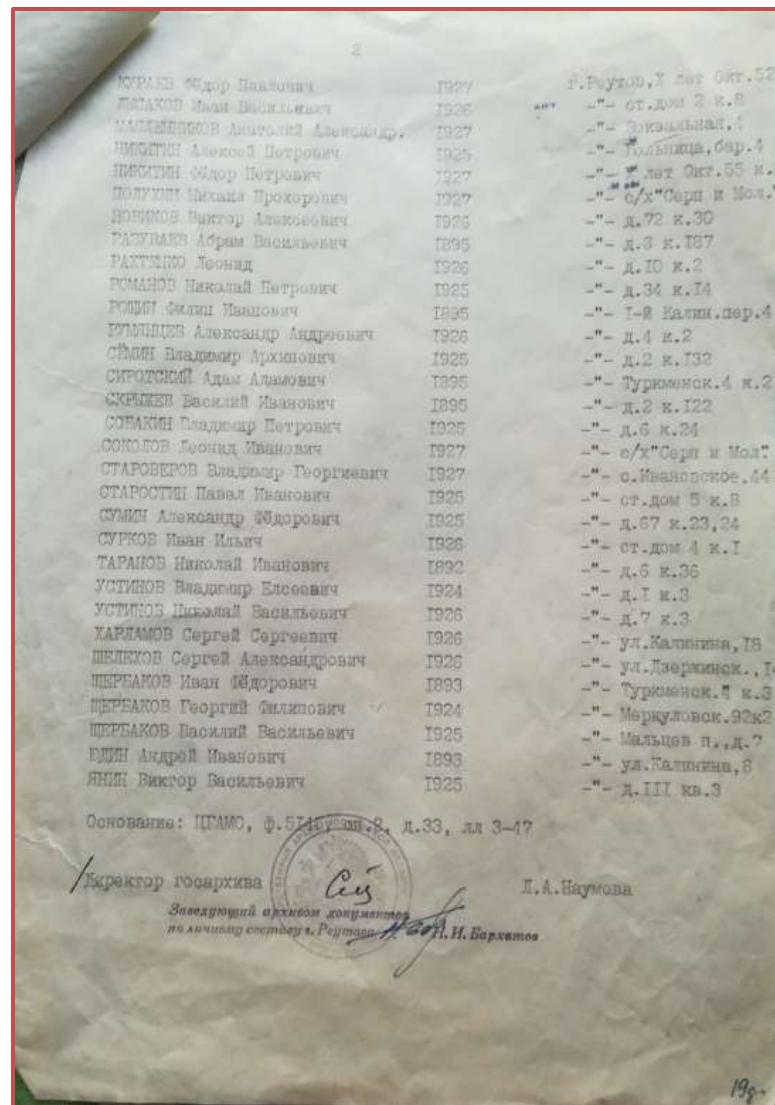 2
КУРАЕВ Фёдор Павлович 1927 г.Реутов,X лет Окт.52
ЛЫСАКОВ Иван Васильевич 1926 -"- ст.дом 2 к.8
МАСЛЕННИКОВ Анатолий Александр. 1927 -"- Вокзальная,4
НИКИТИН Алексей Петрович 1925 -"- Больница,бар.4
НИКИТИН Фёдор Петрович 1927 -"- X лет Окт.55 к.
ПОЛУХИН Михаил Прохорович 1927 -"- с/х"Серп и Мол."
НОВИКОВ Виктор Алексеевич 1926 -"- д.72 к.30
РАЗУВАЕВ Абрам Васильевич 1895 -"- д.3 к.I87
РАХТЕНКО Леонид 1926 -"- д.I0 к.2
РОМАНОВ Николай Петрович 1925 -"- д.34 к.I4
РОЩИН Филип Иванович 1895 -"- I-й Калин.пер.4
РУМЯНЦЕВ Александр Андреевич 1926 -"- д.4 к.2
СЁМИН Владимир Архипович 1925 -"- д.2 к.I32
СИРОТСКИЙ Адам Адамович 1895 -"- Туркменск.4 к.2
СКРЫЖЕВ Василий Иванович 1895 -"- д.2 к.I22
СОБАКИН Владимир Петрович 1925 -"- д.6 к.24
СОКОЛОВ Леонид Иванович 1927 -"- с/х"Серп и Мол"
СТАРОВЕРОВ Владимир Георгиевич 1927 -"- с.Ивановское,44
СТАРОСТИН Павел Иванович 1925 -"- ст.дом 5 к.8
СУМИН Александр Фёдорович 1925 -"- д.67 к.23,24
СУРКОВ Иван Ильич 1926 -"- ст.дом 4 к.I
ТАРАНОВ Николай Иванович 1892 -"- д.6 к.36
УСТИНОВ Владимир Елсеевич 1924 -"- д.I к.3
УСТИНОВ Николай Васильевич 1926 -"- д.7 к.3
ХАРЛАМОВ Сергей Сергеевич 1926 -"- ул.Калинина,I8
ШЕЛЕХОВ Сергей Александрович 1926 -"- ул.Дзержинск.,I4
ЩЕРБАКОВ Иван Фёдорович 1893 -"- Туркменск. к.3
ЩЕРБАКОВ Георгий Филипович 1924 -"- Меркуловск.92к2
ЩЕРБАКОВ Василий Васильевич 1925 -"- Мальцев п.,д.7
ЮДИН Андрей Иванович 1893 -"- ул.Калинина,8
ЯНИН Виктор Васильевич 1925 -"- д.III кв.3
Основание: ЦГАМО, ф. оп.2, д.33, лл 3-47
Директор госархива Л.А.Наумова
Заведующий архивом документов
по личному составу г. Реутова Н.И. Бархатов
19г.